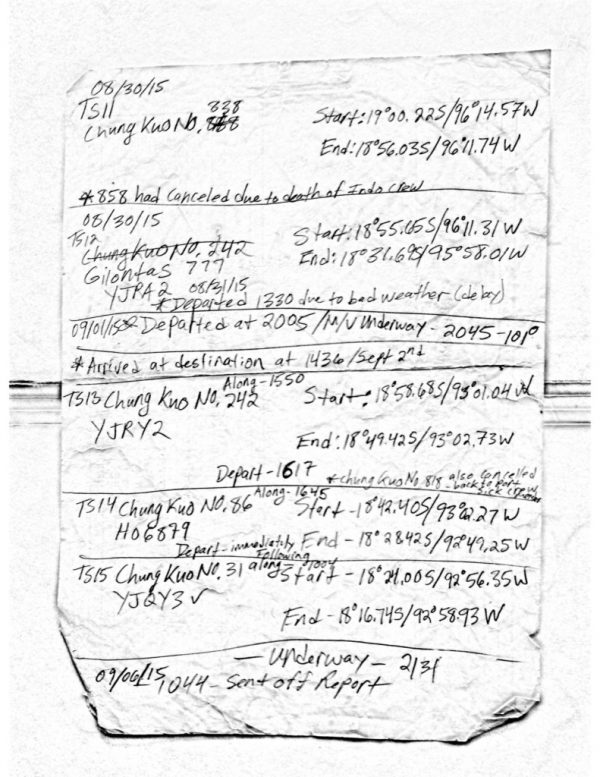 08/30/15
TS11 838
Chung Kuo NO. 868 Start: 19°00.22S/96°14.57W
End: 18°56.03S/96°11.74W
*858 had canceled due to death of Indo crew
08/30/15
TS12 Start: 18°55.65S/96°11.31W
Chung Kuo NO. 242 End: 18°31.69S/95°58.01W
Gilontas 777
YJPA2 08/31/15
*Departed 1330 due to bad weather (delay)
09/01/15 * Departed at 2005/M/V Underway - 2045-101°
* Arrived at destination at 1436/Sept 2nd
Along-1550
TS13 Chung Kuo NO. 242 Start: 18°58.68S/93°01.04W
YJRY2
End: 18°49.42S/93°02.73W
Depart-1617 * Chung Kuo No. 818 also cancelled
- back to port
sick crew
Along-1645
TS14 Chung Kuo NO. 86 Start - 18°42.40S/93°02.27W
HO6879
Depart-immediately End - 18°28.42S/92°49.25W
Following
TS15 Chung Kuo NO. 31 along - 1004 Start - 18°21.00S/92°56.35W
YJQY3 ✓
End - 18°16.74S/92°58.93W
— Underway — 2131
09/06/15 1044 - Sent off Report